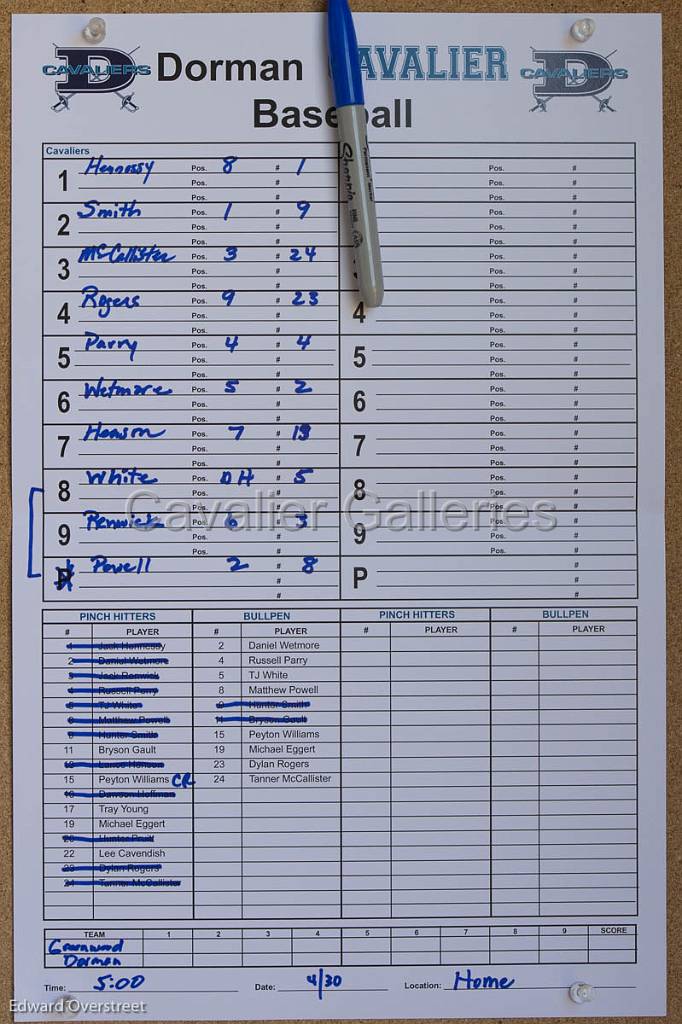 CAVALIERS Dorman CAVALIER CAVALIERS
Baseball
Cavaliers
1 Hennessy Pos. 8 # 1
2 Smith Pos. 1 # 9
3 McCallister Pos. 3 # 24
4 Rogers Pos. 9 # 23 4
5 Parry Pos. 4 # 4 5
6 Wetmore Pos. 5 # 2 6
7 Henson Pos. 7 # 13 7
8 White Pos. DH # 5 8
9 Renwick Pos. 6 # 3 9
Powell 2 # 8 P
Cavalier Galleries
PINCH HITTERS BULLPEN PINCH HITTERS BULLPEN
# PLAYER # PLAYER # PLAYER # PLAYER
1 Jack Hennessy 2 Daniel Wetmore
2 Daniel Wetmore 4 Russell Parry
3 Jack Renwick 5 TJ White
4 Russell Parry 8 Matthew Powell
5 TJ White 9 Hunter Smith
8 Matthew Powell 11 Bryson Gault
9 Hunter Smith 15 Peyton Williams
11 Bryson Gault 19 Michael Eggert
13 Lance Henson 23 Dylan Rogers
15 Peyton Williams CR 24 Tanner McCallister
16 Dawson Hoffman
17 Tray Young
19 Michael Eggert
20 Hunter Pruitt
22 Lee Cavendish
23 Dylan Rogers
24 Tanner McCallister
TEAM 1 2 3 4 5 6 7 8 9 SCORE
Greenwood
Dorman
Time: 5:00 Date: 4/30 Location: Home
Edward Overstreet